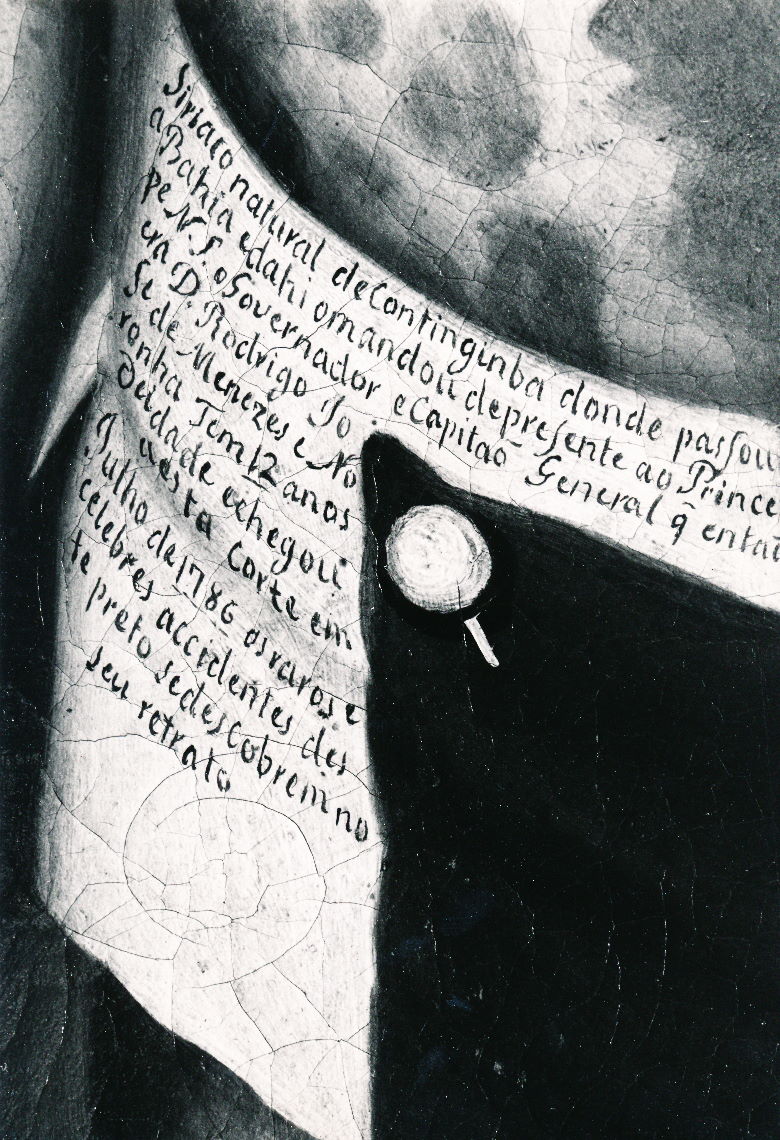 Siriaco natural deContinginba donde passou
a Bahia edahi omandou depresente ao Prince
pe N. S. oGovernador e Capitaõ General q̃ enta
era D. Rodrigo Jo
se de Menezes e No
ronha Tem 12 anos
deidade echegou
a esta Corte em
Julho de 1786 os raros e
celebres accidentes des
te preto sedescobrem no
seu retrato